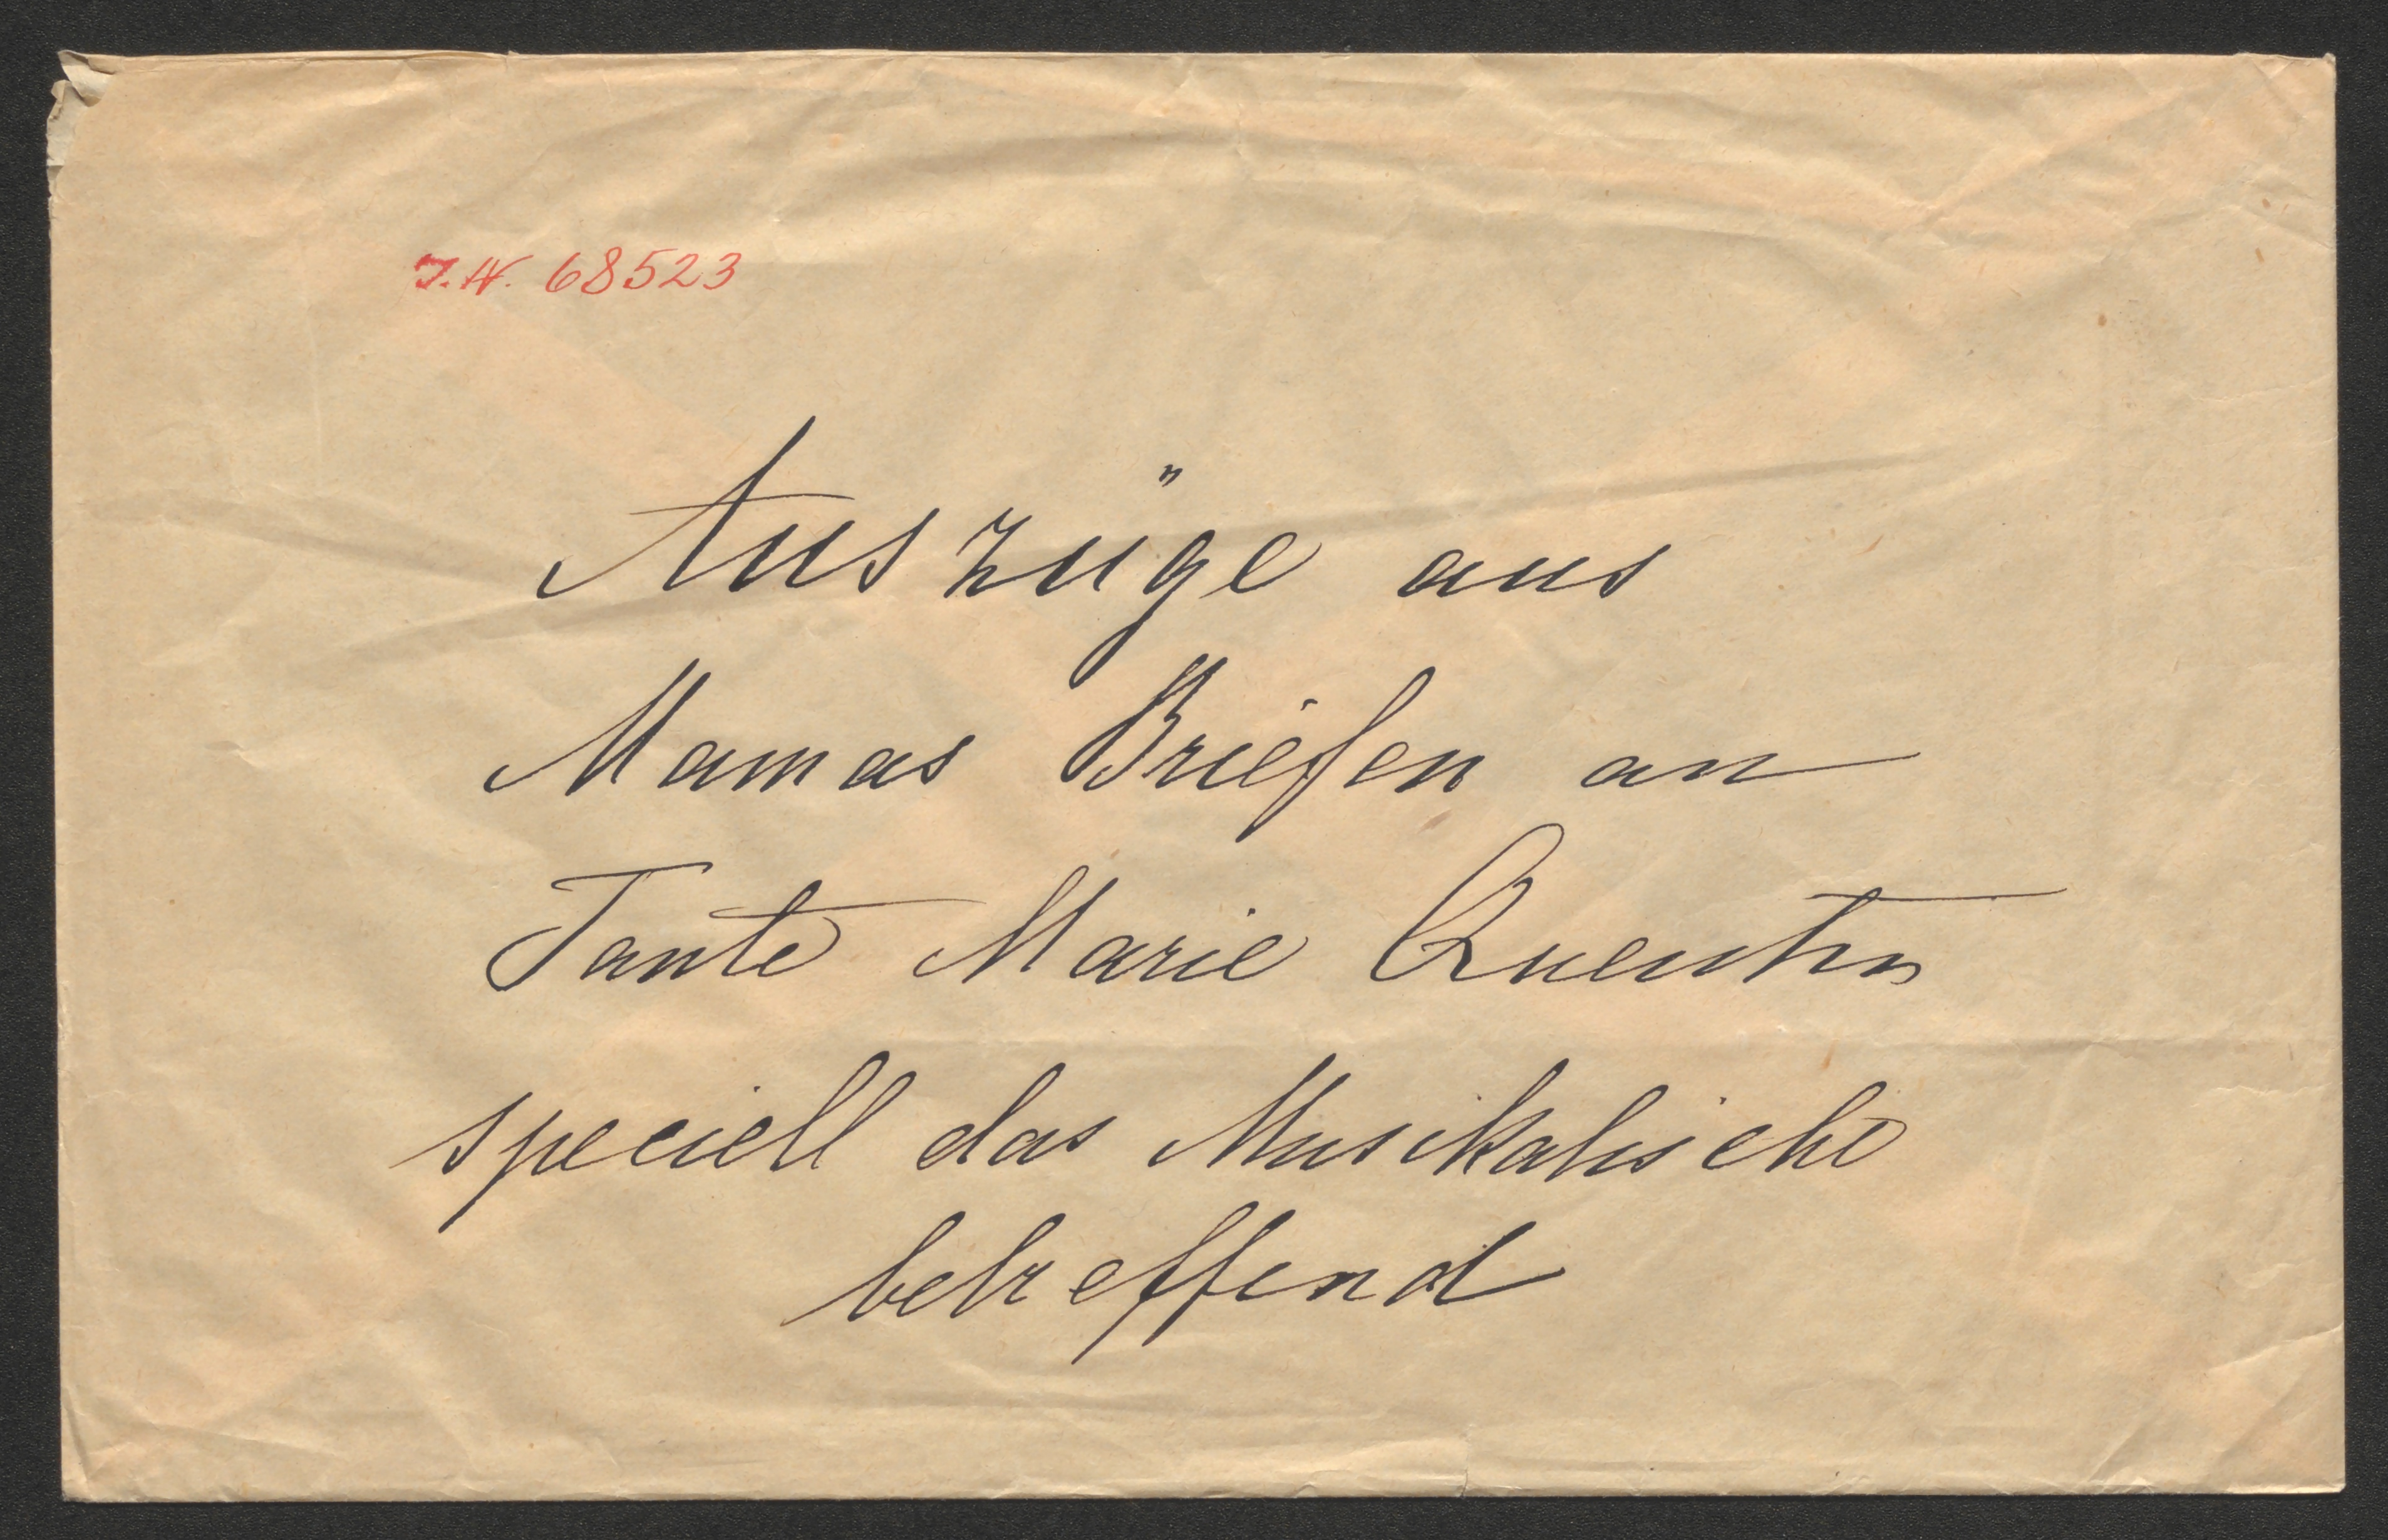 J.N. 68523
Auszüge aus
Mamas Briefen an
Tante Marie Quentin
speciell das Musikalische
betreffend